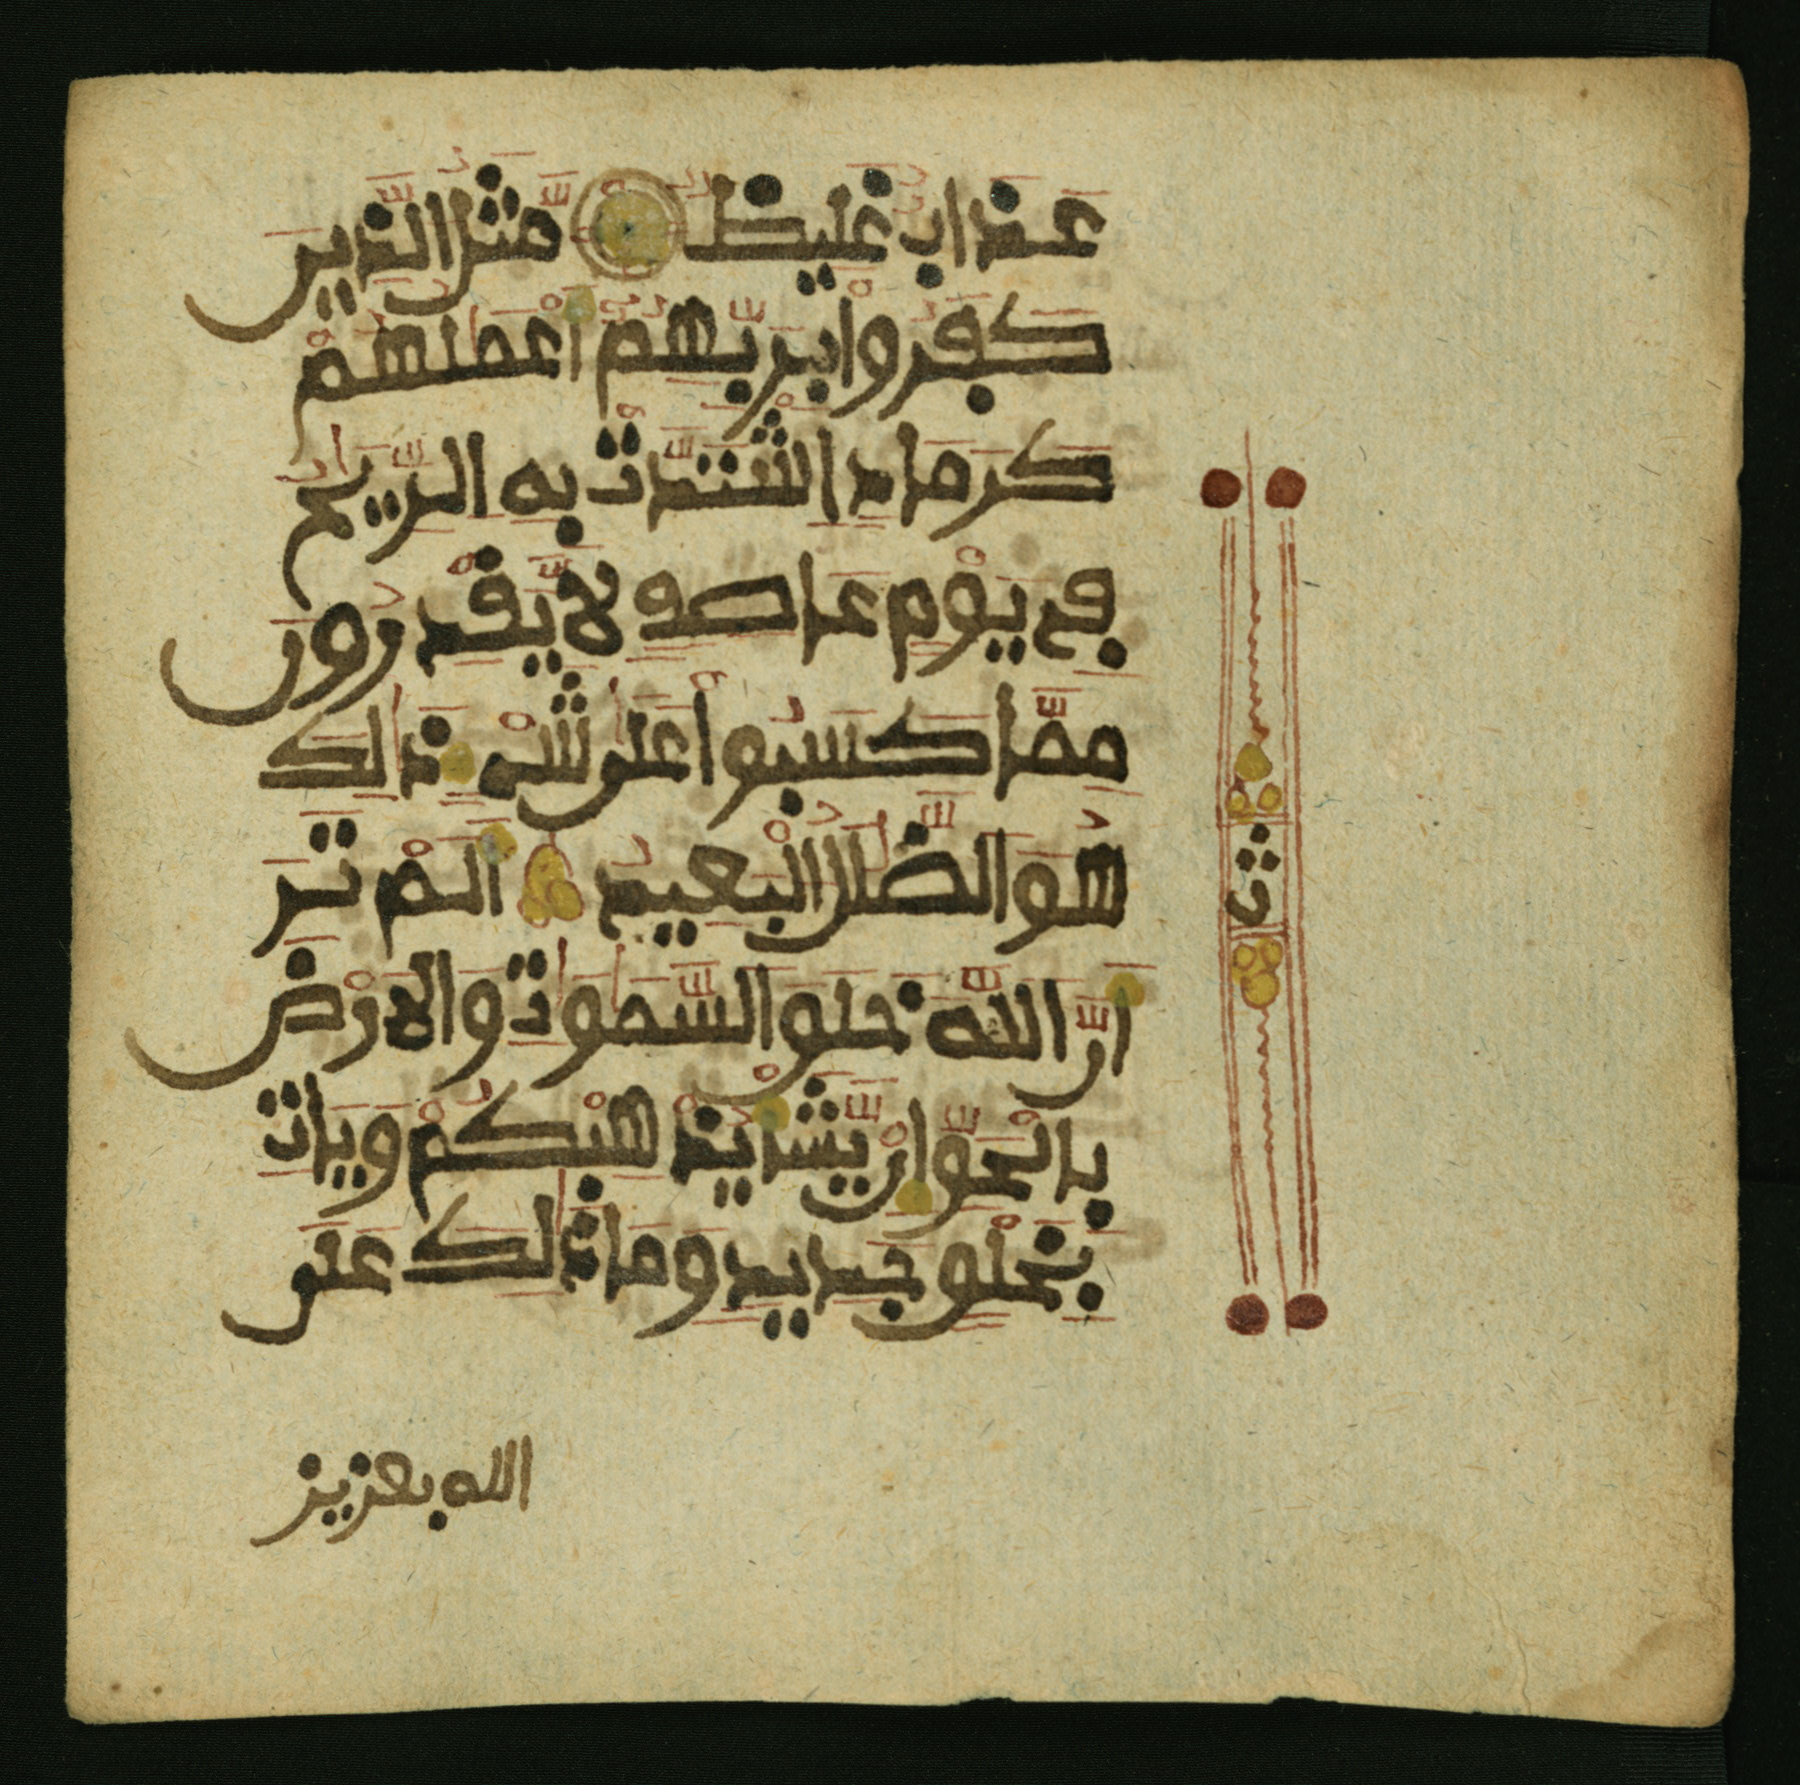 عذاب غليظ مثل الذين
كفروا بربهم أعملهم
كرماد اشتدت به الريح
في يوم عاصف لا يقدرون
مما كسبوا على شىء ذلك
هو الضلل البعيد ألم تر
أن الله خلق السموت والارض
بالحق إن يشأ يذهبكم ويات
بخلق جديد وما ذلك على
ث
الله بعزيز